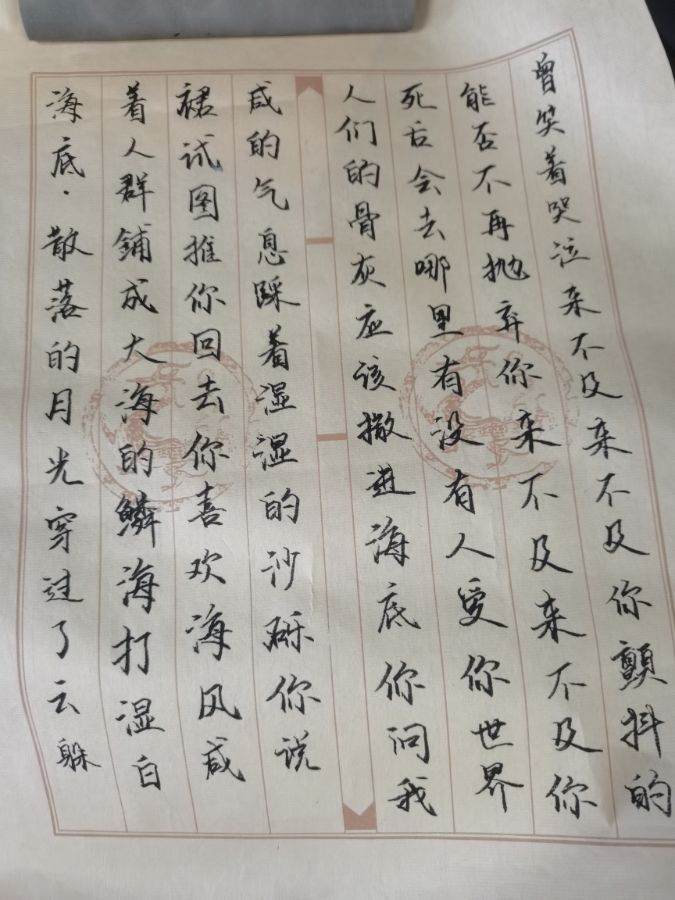 海底·散落的月光穿过了云躲
着人群鋪成大海的鳞海打湿白
裙试图推你回去你喜欢海风咸
咸的气息踩着湿湿的沙砾你说
人们的骨灰应该撒进海底你问我
死后会去哪里有没有人爱你世界
能否不再抛弃你来不及来不及你
曾笑着哭泣来不及来不及你顫抖的